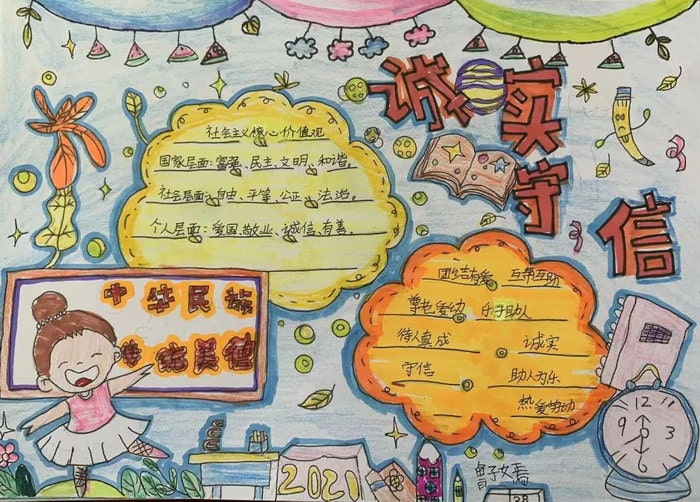 诚实
守
信
社会主义核心价值观
国家层面:富强、民主、文明、和谐。
社会层面:自由、平等、公正、法治。
个人层面:爱国、敬业、诚信、有善。
中华民族
传统美德
团结有爱 互帮互助
尊老爱幼 乐于助人
待人真成 诚实
守信 助人为乐
热爱劳动
12
9 3
6
2021
28